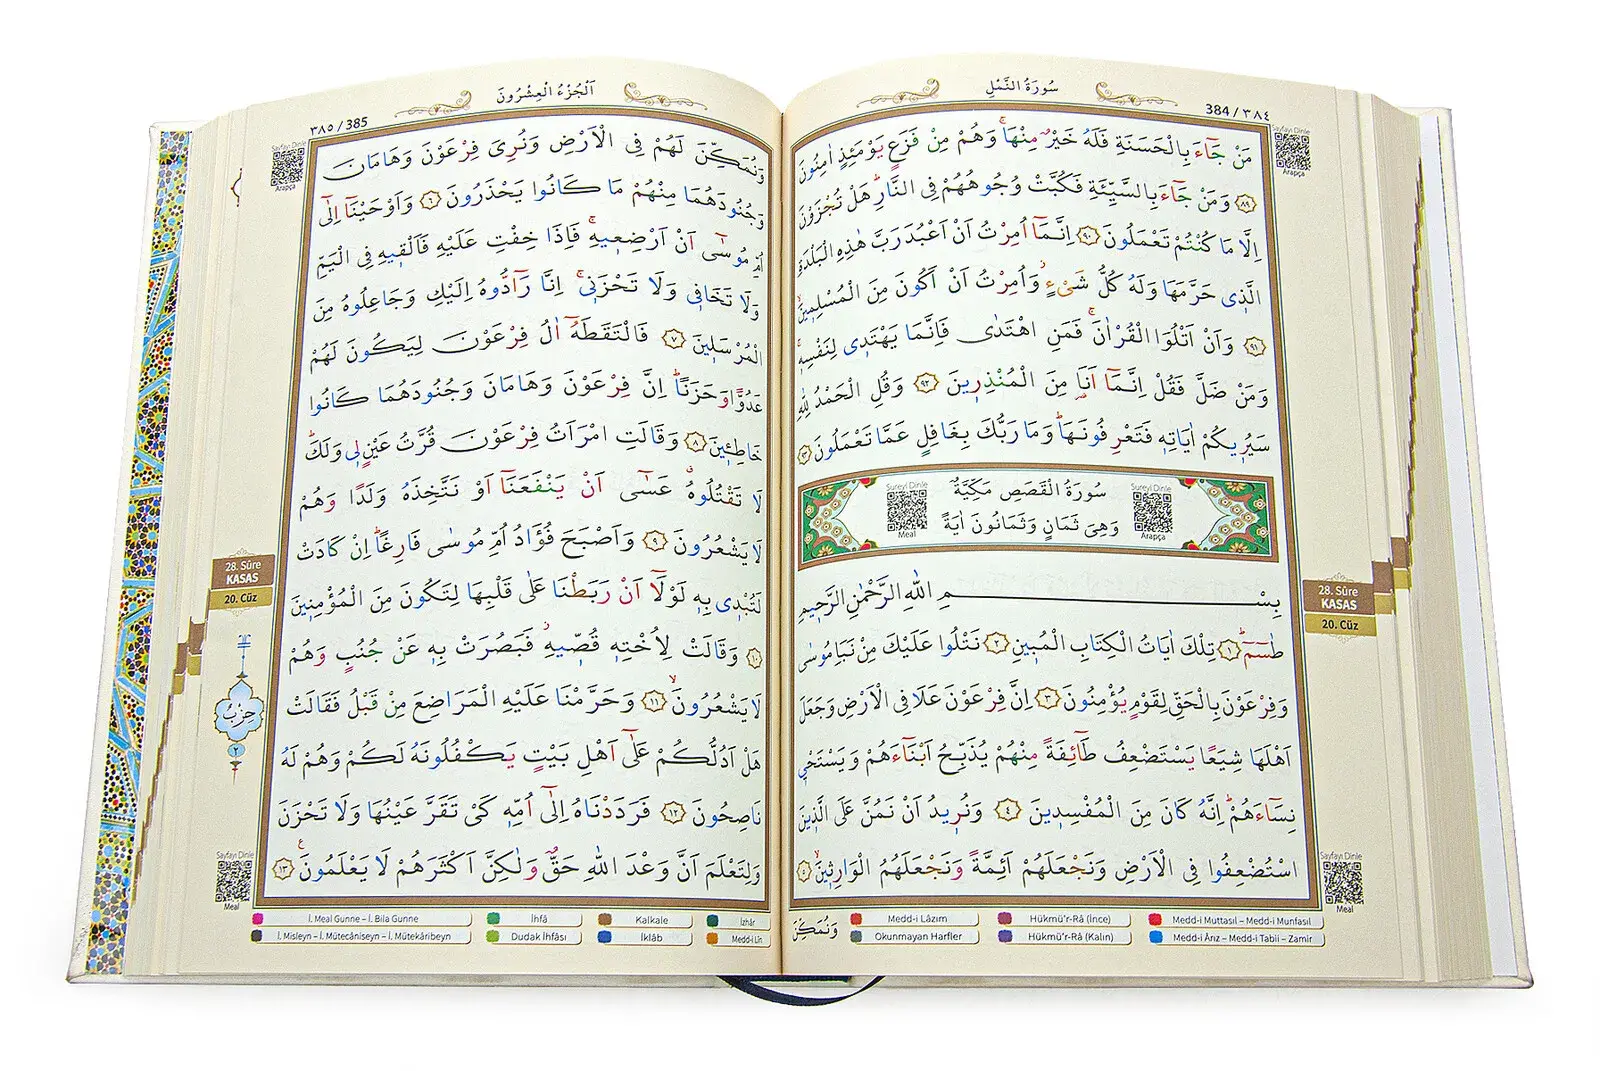 سُورَةُ النَّمْلِ
384 / ٣٨٤
Sayfayı Dinle
Arapça
مَنْ جَٓاءَ بِالْحَسَنَةِ فَلَهُ خَيْرٌ مِنْهَاۚ وَهُمْ مِنْ فَزَعٍ يَوْمَئِذٍ اٰمِنُونَ
﴿٨٩﴾ وَمَنْ جَٓاءَ بِالسَّيِّئَةِ فَكُبَّتْ وُجُوهُهُمْ فِي النَّارِۜ هَلْ تُجْزَوْنَ
اِلَّا مَا كُنْتُمْ تَعْمَلُونَ ﴿٩٠﴾ اِنَّمَٓا اُمِرْتُ اَنْ اَعْبُدَ رَبَّ هٰذِهِ الْبَلْدَةِ
الَّذ۪ي حَرَّمَهَا وَلَهُ كُلُّ شَيْءٍۘ وَاُمِرْتُ اَنْ اَكُونَ مِنَ الْمُسْلِم۪ينَۙ
﴿٩١﴾ وَاَنْ اَتْلُوَا الْقُرْاٰنَۚ فَمَنِ اهْتَدٰى فَاِنَّمَا يَهْتَد۪ي لِنَفْسِه۪ۚ
وَمَنْ ضَلَّ فَقُلْ اِنَّمَٓا اَنَا۬ مِنَ الْمُنْذِر۪ينَ ﴿٩٢﴾ وَقُلِ الْحَمْدُ لِلّٰهِ
سَيُر۪يكُمْ اٰيَاتِه۪ فَتَعْرِفُونَهَاۜ وَمَا رَبُّكَ بِغَافِلٍ عَمَّا تَعْمَلُونَ ﴿٩٣﴾
Sureyi Dinle
Arapça
سُورَةُ الْقَصَصِ مَكِّيَّةٌ
وَهِيَ ثَمَانٍ وَثَمَانُونَ اٰيَةً
Sureyi Dinle
Meal
بِسْمِ اللّٰهِ الرَّحْمٰنِ الرَّح۪يمِ
طٰسٓمٓۜ ﴿١﴾ تِلْكَ اٰيَاتُ الْكِتَابِ الْمُب۪ينِ ﴿٢﴾ نَتْلُوا عَلَيْكَ مِنْ نَبَأِ مُوسٰى
وَفِرْعَوْنَ بِالْحَقِّ لِقَوْمٍ يُؤْمِنُونَ ﴿٣﴾ اِنَّ فِرْعَوْنَ عَلَا فِي الْاَرْضِ وَجَعَلَ
اَهْلَهَا شِيَعًا يَسْتَضْعِفُ طَٓائِفَةً مِنْهُمْ يُذَبِّحُ اَبْنَٓاءَهُمْ وَيَسْتَحْي۪
نِسَٓاءَهُمْۜ اِنَّهُ كَانَ مِنَ الْمُفْسِد۪ينَ ﴿٤﴾ وَنُر۪يدُ اَنْ نَمُنَّ عَلَى الَّذ۪ينَ
اسْتُضْعِفُوا فِي الْاَرْضِ وَنَجْعَلَهُمْ اَئِمَّةً وَنَجْعَلَهُمُ الْوَارِث۪ينَۙ ﴿٥﴾
وَنُمَكِّنَ
28. Sûre
KASAS
20. Cüz
Sayfayı Dinle
Meal
Medd-i Lâzım
Hükmü'r-Râ (İnce)
Medd-i Muttasıl – Medd-i Munfasıl
Okunmayan Harfler
Hükmü'r-Râ (Kalın)
Medd-i Ârız – Medd-i Tabii – Zamir
اَلْجُزْءُ الْعِشْرُونَ
٣٨٥ / 385
Sayfayı Dinle
Arapça
وَنُمَكِّنَ لَهُمْ فِي الْاَرْضِ وَنُرِيَ فِرْعَوْنَ وَهَامَانَ
وَجُنُودَهُمَا مِنْهُمْ مَا كَانُوا يَحْذَرُونَ ﴿٦﴾ وَاَوْحَيْنَٓا اِلٰٓى
اُمِّ مُوسٰٓى اَنْ اَرْضِع۪يهِۚ فَاِذَا خِفْتِ عَلَيْهِ فَاَلْق۪يهِ فِي الْيَمِّ
وَلَا تَخَاف۪ي وَلَا تَحْزَن۪يۚ اِنَّا رَٓادُّوهُ اِلَيْكِ وَجَاعِلُوهُ مِنَ
الْمُرْسَل۪ينَ ﴿٧﴾ فَالْتَقَطَهُٓ اٰلُ فِرْعَوْنَ لِيَكُونَ لَهُمْ
عَدُوًّا وَحَزَنًاۜ اِنَّ فِرْعَوْنَ وَهَامَانَ وَجُنُودَهُمَا كَانُوا
خَاطِـ۪ٔينَ ﴿٨﴾ وَقَالَتِ امْرَاَتُ فِرْعَوْنَ قُرَّتُ عَيْنٍ ل۪ي وَلَكَۜ
لَا تَقْتُلُوهُۗ عَسٰٓى اَنْ يَنْفَعَنَٓا اَوْ نَتَّخِذَهُ وَلَدًا وَهُمْ
لَا يَشْعُرُونَ ﴿٩﴾ وَاَصْبَحَ فُؤٰادُ اُمِّ مُوسٰى فَارِغًاۜ اِنْ كَادَتْ
لَتُبْد۪ي بِه۪ لَوْلَٓا اَنْ رَبَطْنَا عَلٰى قَلْبِهَا لِتَكُونَ مِنَ الْمُؤْمِن۪ينَ
﴿١٠﴾ وَقَالَتْ لِاُخْتِه۪ قُصّ۪يهِۘ فَبَصُرَتْ بِه۪ عَنْ جُنُبٍ وَهُمْ
لَا يَشْعُرُونَۙ ﴿١١﴾ وَحَرَّمْنَا عَلَيْهِ الْمَرَاضِعَ مِنْ قَبْلُ فَقَالَتْ
هَلْ اَدُلُّكُمْ عَلٰٓى اَهْلِ بَيْتٍ يَكْفُلُونَهُ لَكُمْ وَهُمْ لَهُ
نَاصِحُونَ ﴿١٢﴾ فَرَدَدْنَاهُ اِلٰٓى اُمِّه۪ كَيْ تَقَرَّ عَيْنُهَا وَلَا تَحْزَنَ
وَلِتَعْلَمَ اَنَّ وَعْدَ اللّٰهِ حَقٌّ وَلٰكِنَّ اَكْثَرَهُمْ لَا يَعْلَمُونَ۟ ﴿١٣﴾
28. Sûre
KASAS
20. Cüz
حِزْبُ
٢
Sayfayı Dinle
Meal
İ. Meal Gunne – İ. Bila Gunne
İhfâ
Kalkale
İzhâr
İ. Misleyn – İ. Mütecâniseyn – İ. Mütekâribeyn
Dudak İhfâsı
İklâb
Medd-i Lîn